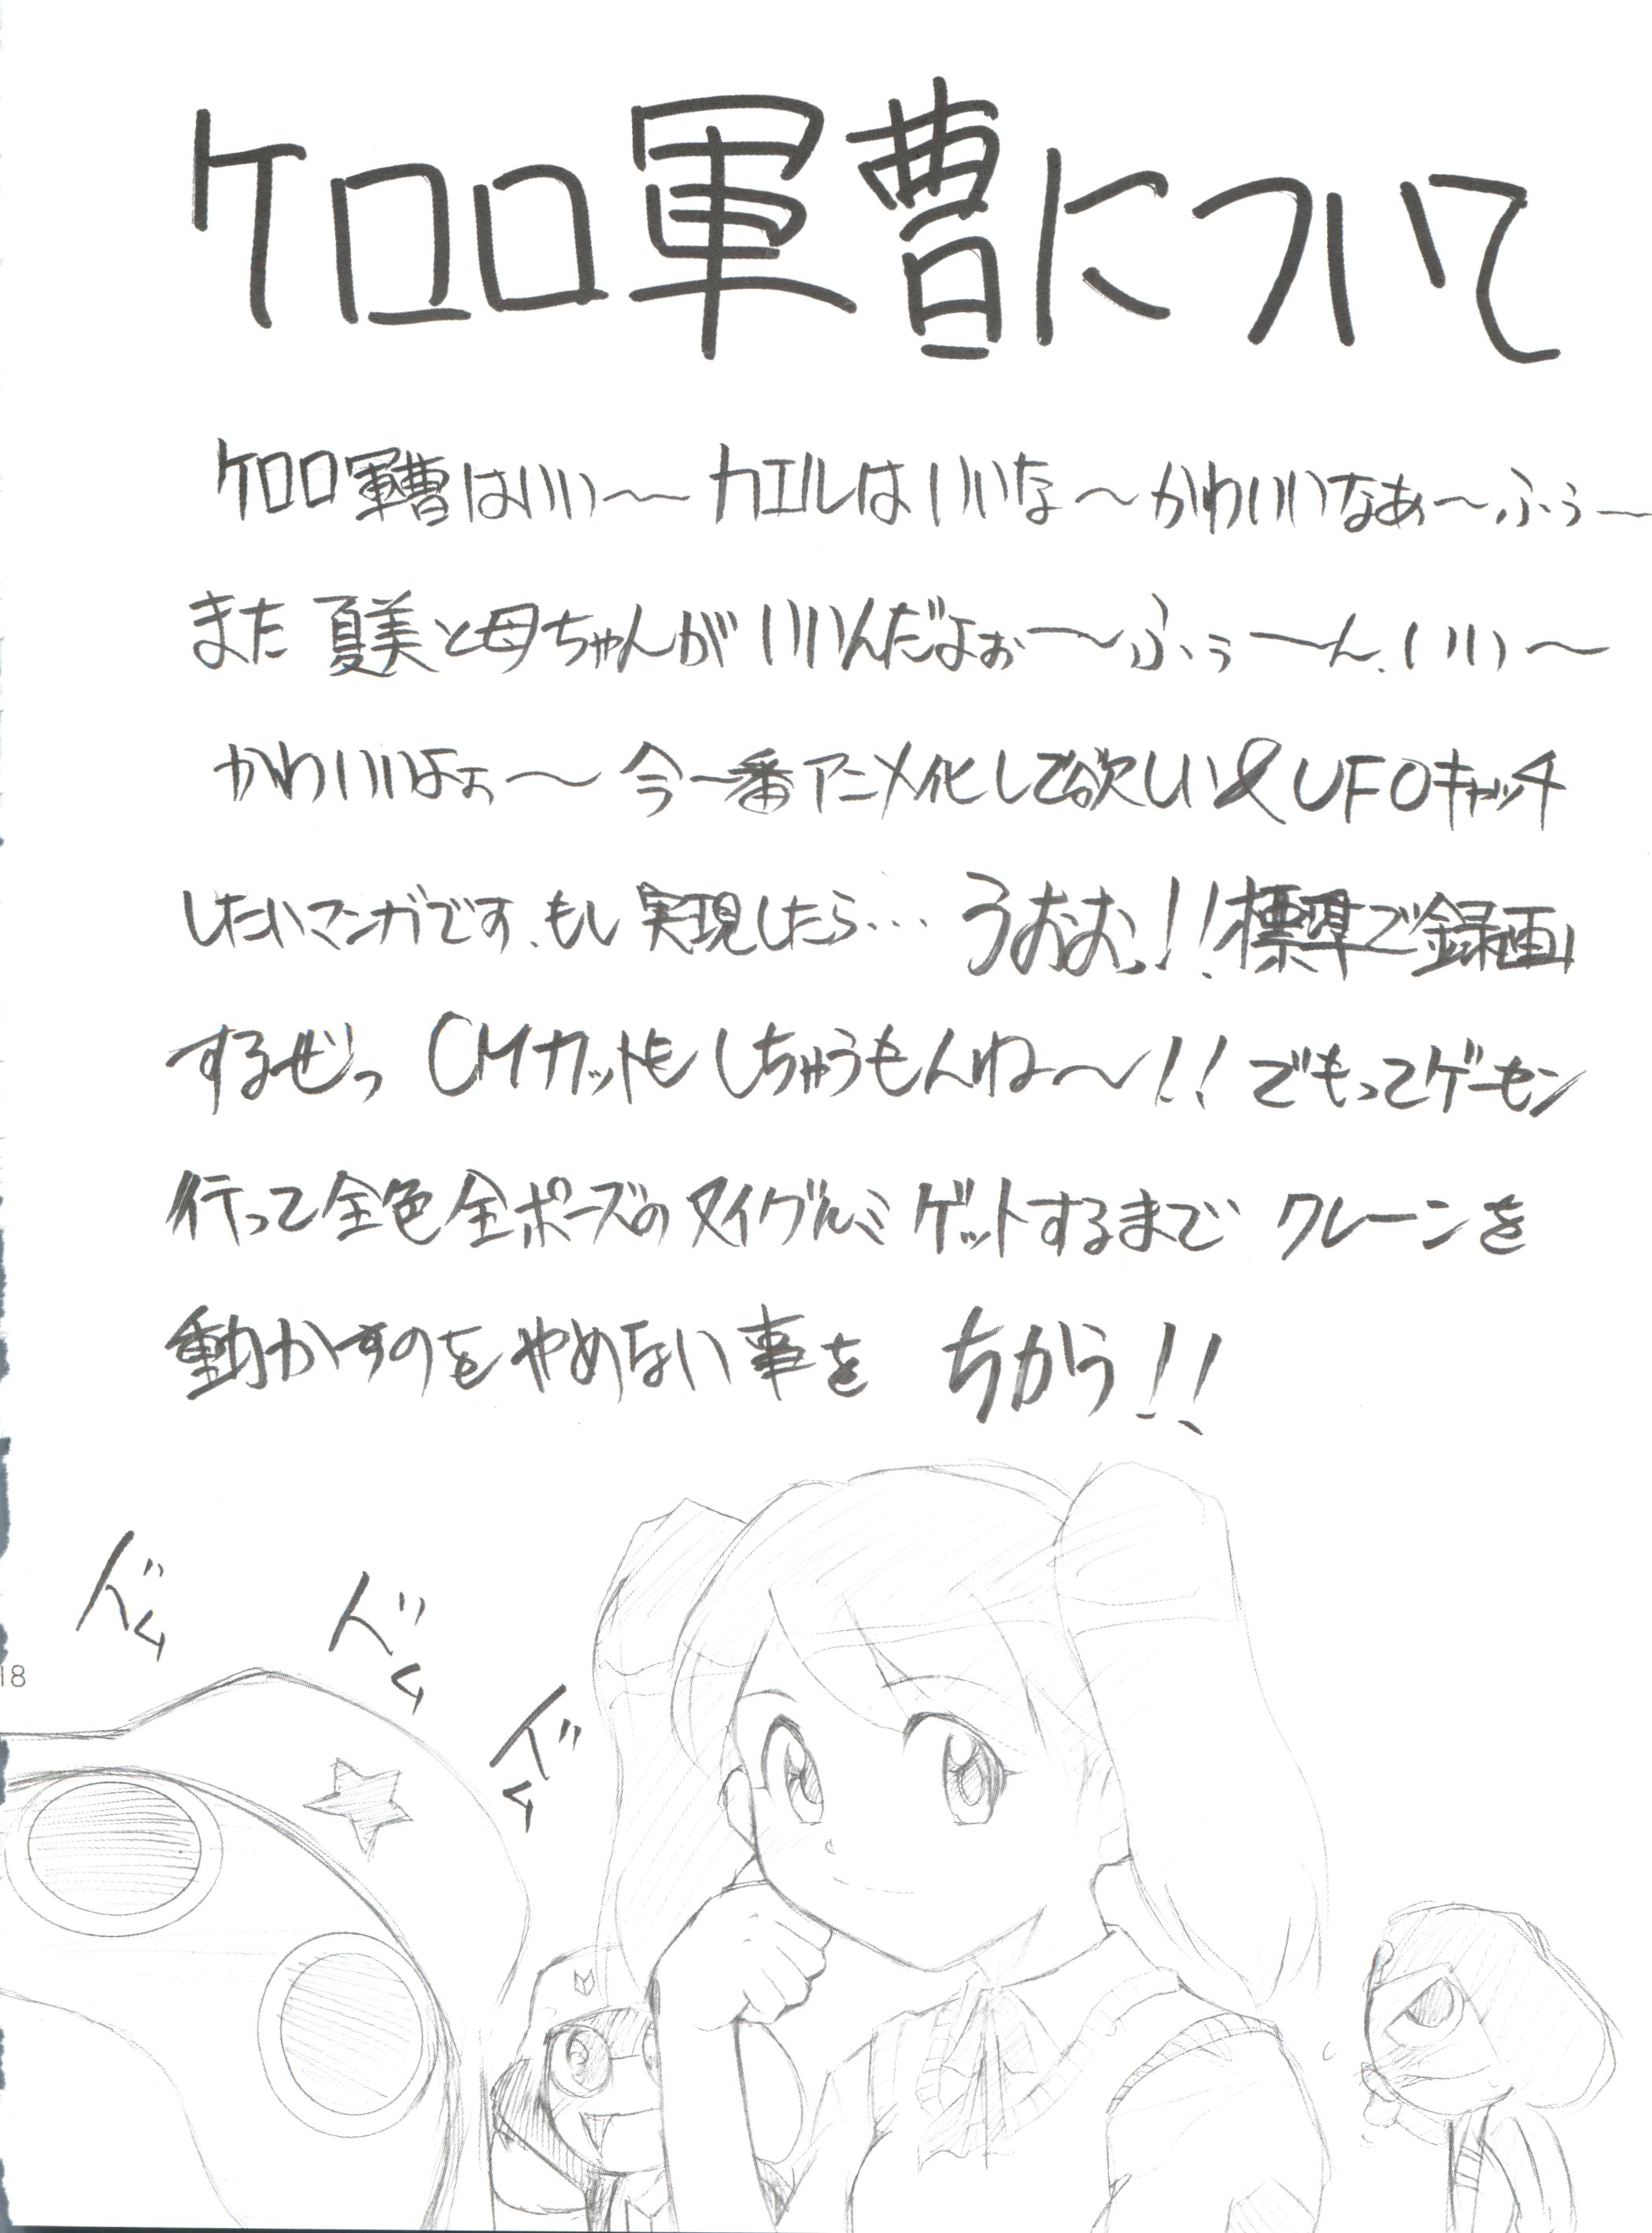 ケロロ軍曹について
ケロロ軍曹はいい〜〜カエルはいいな〜かわいいなぁ〜ふぅ〜
また夏美と母ちゃんがいいんだよぉ〜〜ふぅ〜〜ん、いい〜
かわいいよぉ〜〜今一番アニメ化して欲しい&UFOキャッチ
したいマンガです、もし実現したら…うおおっ!!標準で録画
するぜっ CMカットもしちゃうもんね〜〜!!でもってゲーセン
行って全色全ポーズのヌイグルミゲットするまでクレーンを
動かすのをやめない事を ちかう!!
ドム
ドム
ドム
18